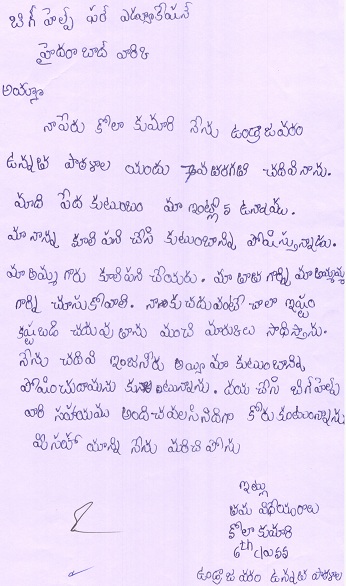 బిగ్ హెల్ప్ ఫర్ ఎడ్యుకేషన్
హైదరాబాద్ వారికి
అయ్యా
నా పేరు కోలా కుమారి నేను ఉండ్రాజవరం
ఉన్నత పాఠశాల యందు 7వ తరగతి చదివినాను.
మాది పేద కుటుంబం మా ఇంట్లో 5 ఉన్నాము.
మా నాన్న కూలి పని చేసి కుటుంబాన్ని పోషిస్తున్నాడు.
మా అమ్మ గారు కూలిపని చేయరు. మా తాత గార్ని మా అమ్మమ్మ
గార్ని చూసుకోవాలి. నాకు చదువంటే చాలా ఇష్టం
కష్టబడి చదువుతాను మంచి మారుకులు సాధిస్తాను.
నేను చదివి ఇంజనీరు అయ్యి మా కుటుంబాన్ని
పోషించుదామను కుంటున్నాను. దయ చేసి బిగ్ హెల్ప్
వారి సహాయము అందిచవలసినదిగా కోరుకుంటున్నాను
మీ సహా యాన్ని నేను మరిచి పోను
ఇట్లు
తమ విధేయురాలు
కోలా కుమారి
6th class
ఉండ్రాజవరం ఉన్నత పాఠశాల